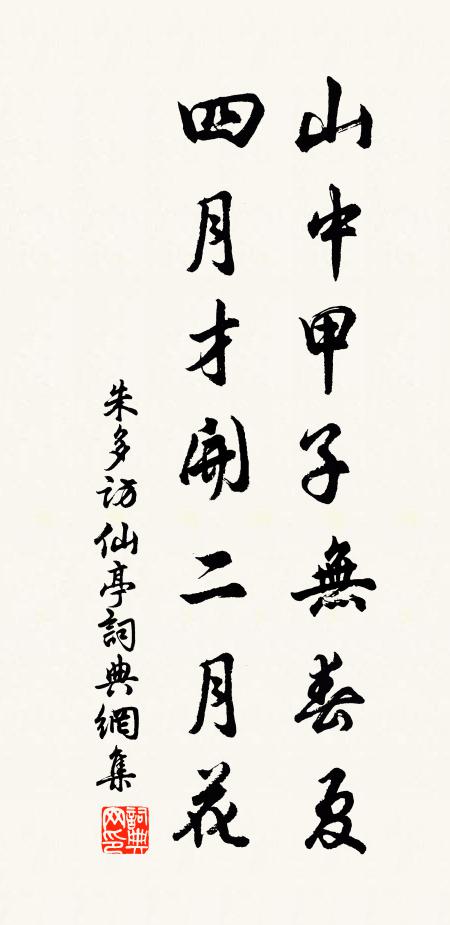 山中甲子無春夏
四月才開二月花
朱多訪仙亭詞典網集
詞典网印